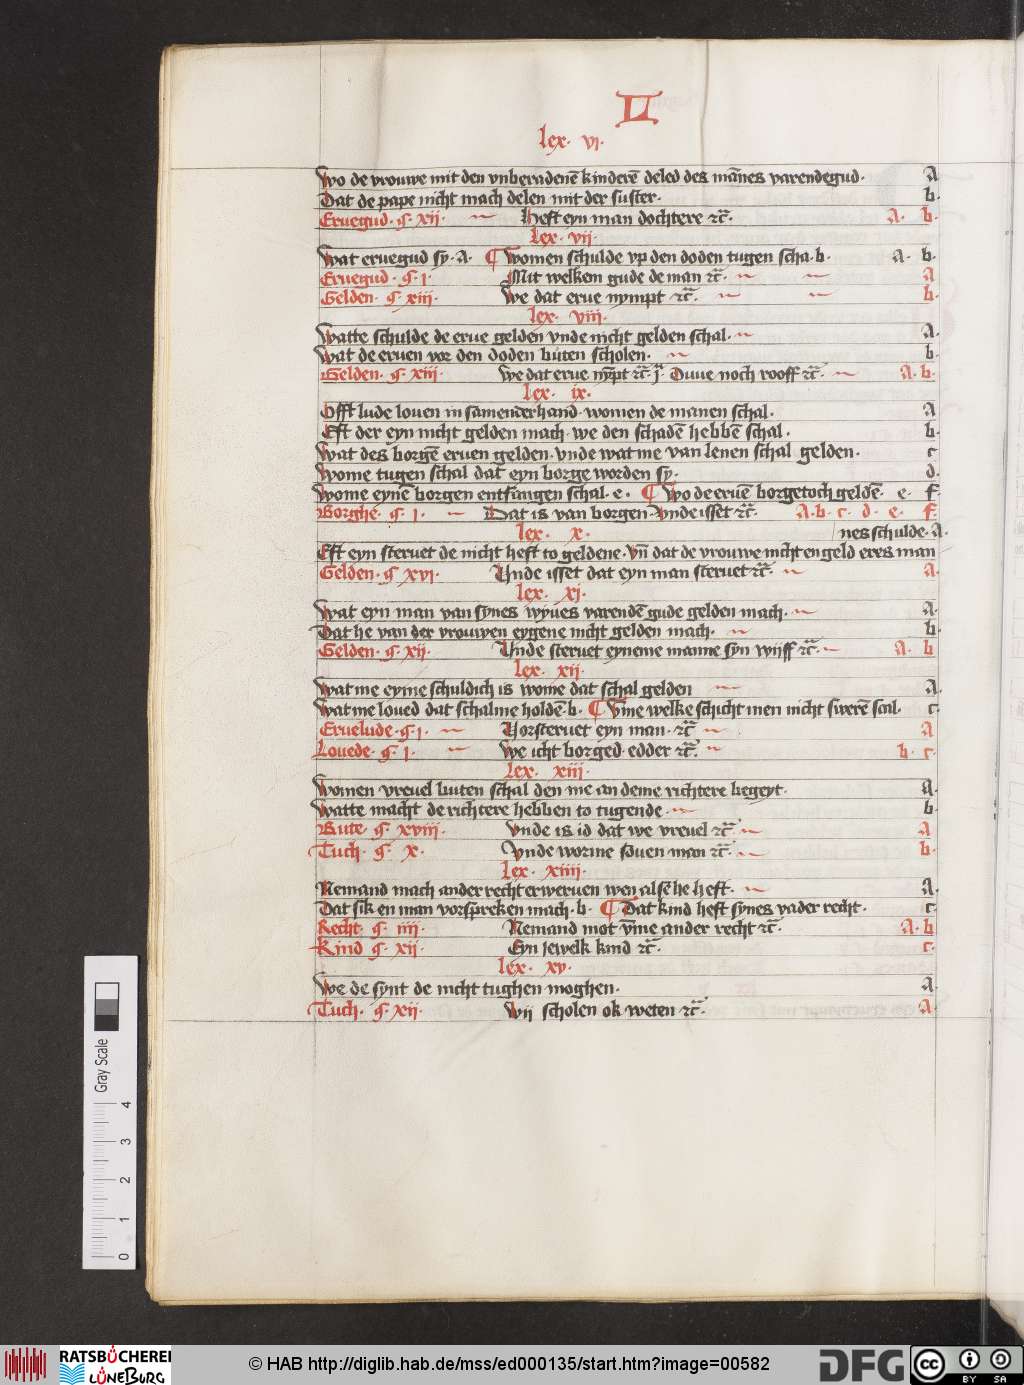 LI
lex. vi.
Wo de vrouwe mit den vnberadenē kinderē deled des mānes varendegud. A
Dat de pape nicht mach delen mit der suster. b.
Eruegud. ꝗ. xij. Heft eyn man dochtere ꝛc̄. A. b.
lex. vij
Wat eruegud sy. A. ¶ Women schulde vp den doden tugen scha. b. A. b.
Eruegud. ꝗ. j. Mit welkem gude de man ꝛc̄. A
Gelden. ꝗ xiij. We dat erue nympt ꝛc̄. b.
lex. viij.
Watte schulde de erue gelden vnde nicht gelden schal. A.
Wat de eruen vor den doden buten scholen. b.
Gelden. ꝗ. xiij. We dat erue nȳpt ꝛc̄. j. Duue noch rooff ꝛc̄. A. b.
lex. ix.
Offt lude louen in samenderhand. women de manen schal. A
Eft der eyn nicht gelden mach. we den schadē hebbē schal. b.
Wat des borgē eruen gelden. vnde wat me van lenen schal gelden. c
Wome tugen schal dat eyn borge worden sy. d.
Wome eynē borgen entfangen schal. e. ¶ Wo de eruē borgetoch geldē. e. f.
Borghe. ꝗ. j. Dat is van borgen. Vnde isset ꝛc̄. A. b. c. d. e. f.
lex. x. nes schulde. A.
Eft eyn steruet de nicht heft to geldene. vn̄ dat de vrouwe nicht en geld eres man
Gelden. ꝗ xvi. Vnde isset dat eyn man steruet ꝛc̄. A.
lex. xi.
Wat eyn man van synes wyues varendē gude gelden mach. A.
Dat he van der vrouwen eygene nicht gelden mach. b.
Gelden. ꝗ. xij. Vnde steruet eyneme manne syn wijff ꝛc̄. A. b
lex. xij
Wat me eyme schuldich is wome dat schal gelden A.
Wat me loued dat schalme holdē. b. ¶ Vm̄e welke schicht men nicht swerē scal. c.
Eruelude. ꝗ. j. Vorsteruet eyn man. ꝛc̄. A
Louede. ꝗ. j. We icht borged. edder ꝛc̄. b. c.
lex. xiij.
Women vreuel buten schal den me an deme richtere begeyt. A.
Watte macht de richtere hebben to tugende. b
Bute. ꝗ. xviij. Vnde is id dat we vreuel ꝛc̄. A
Tuch. ꝗ. x. Vnde worme souen man ꝛc̄. b.
lex. xiiij.
Nemand mach ander recht erweruen wen alse he heft. A.
Dat sik en man vorspreken mach. b. ¶ Dat kind heft synes vader recht. c
Recht. ꝗ. iiij. Nemand mot vm̄e ander recht ꝛc̄. A. b
Kind. ꝗ. xij. Eyn jewelk kind ꝛc̄. c.
lex. xv.
We de synt de nicht tughen moghen. A.
Tuch. ꝗ. xij. Wij scholen ok weten ꝛc̄. A.
Gray Scale
0 1 2 3 4
RATSBÜCHEREI LÜNEBURG
© HAB http://diglib.hab.de/mss/ed000135/start.htm?image=00582
DFG
cc BY SA